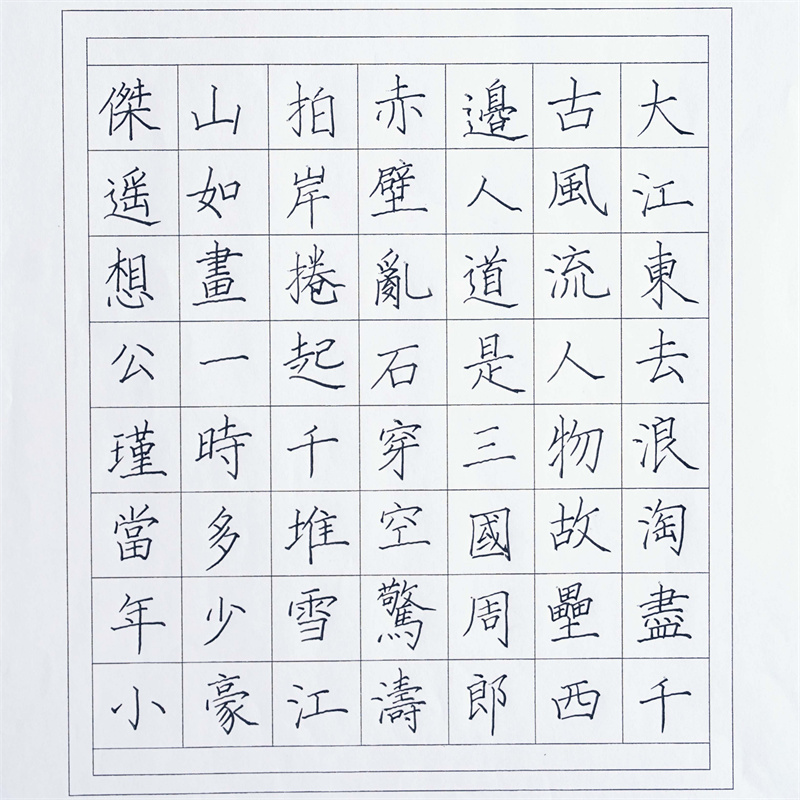 大江東去浪淘盡千
古風流人物故壘西
邊人道是三國周郎
赤壁亂石穿空驚濤
拍岸捲起千堆雪江
山如畫一時多少豪
傑遥想公瑾當年小